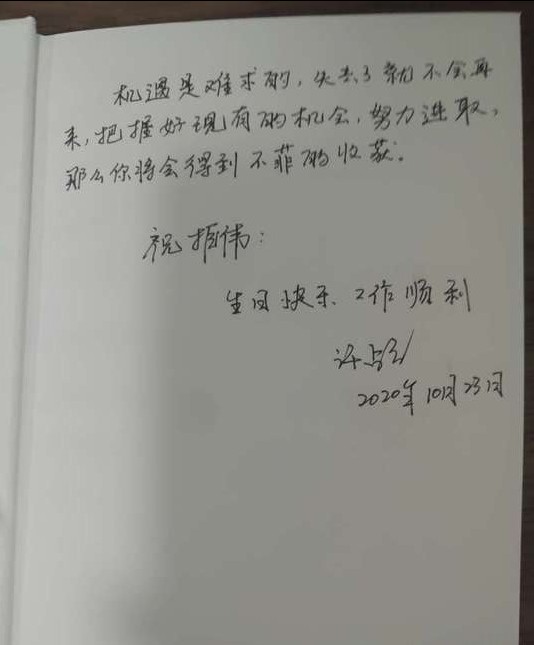 机遇是难求的，失去了就不会再
来，把握好现有的机会，努力进取，
那么你将会得到不菲的收获。
祝振伟：
生日快乐、工作顺利
许
2020年10月23日